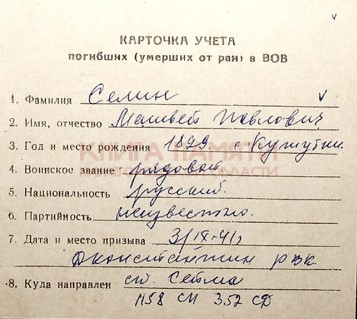 КАРТОЧКА УЧЕТА
погибших (умерших от ран) в ВОВ
1. Фамилия Селин
2. Имя, отчество Матвей Павлович
3. Год и место рождения 1899 с Кужутки
КНИГА ПАМЯТИ
4. Воинское звание рядовой
ОБЛАСТИ
5. Национальность русский
6. Партийность неизвестно
7. Дата и место призыва 3/IX-41г
Д константин рвк
8. Куда направлен ст Сейма
1158 СП 352 СД